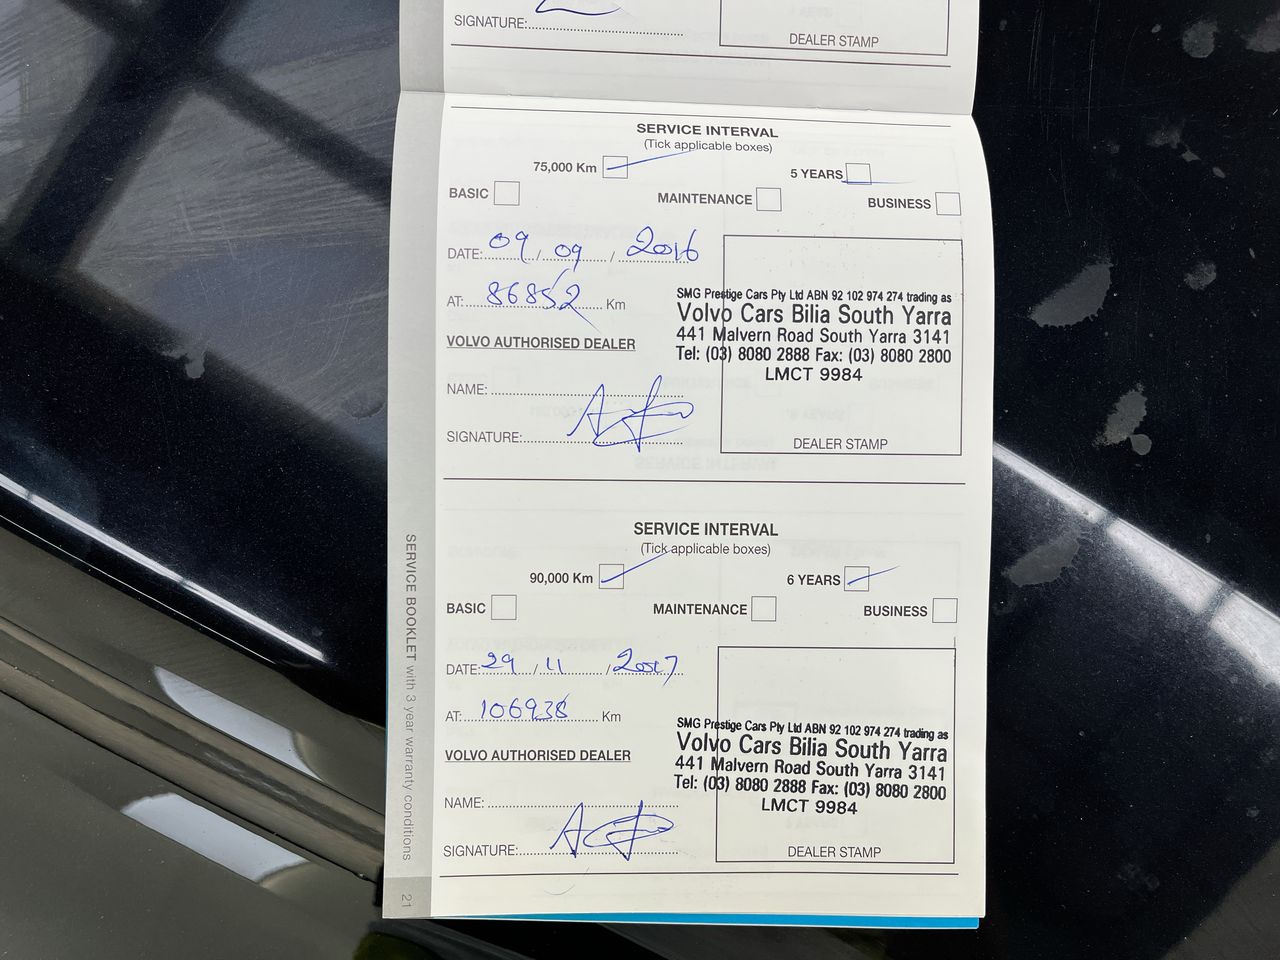 SIGNATURE:
DEALER STAMP
SERVICE INTERVAL
(Tick applicable boxes)
75,000 Km
5 YEARS
BASIC
MAINTENANCE
BUSINESS
DATE: 09 / 09 / 2016
AT: 86852 Km
VOLVO AUTHORISED DEALER
NAME:
SIGNATURE:
SMG Prestige Cars Pty Ltd ABN 92 102 974 274 trading as
Volvo Cars Bilia South Yarra
441 Malvern Road South Yarra 3141
Tel: (03) 8080 2888 Fax: (03) 8080 2800
LMCT 9984
DEALER STAMP
SERVICE INTERVAL
(Tick applicable boxes)
90,000 Km
6 YEARS
BASIC
MAINTENANCE
BUSINESS
DATE: 29 / 11 / 2017
AT: 106938 Km
VOLVO AUTHORISED DEALER
NAME:
SIGNATURE:
SMG Prestige Cars Pty Ltd ABN 92 102 974 274 trading as
Volvo Cars Bilia South Yarra
441 Malvern Road South Yarra 3141
Tel: (03) 8080 2888 Fax: (03) 8080 2800
LMCT 9984
DEALER STAMP
SERVICE BOOKLET with 3 year warranty conditions
21